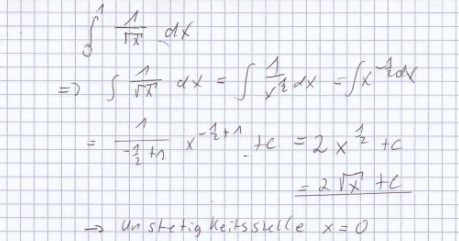 ∫₀¹ 1/√x dx
=> ∫ 1/√x dx = ∫ 1/x^(1/2) dx = ∫ x^(-1/2) dx
= 1/(-1/2+1) x^(-1/2+1) + c = 2 x^(1/2) + c
= 2 √x + c
→ Unstetigkeitsstelle x = 0